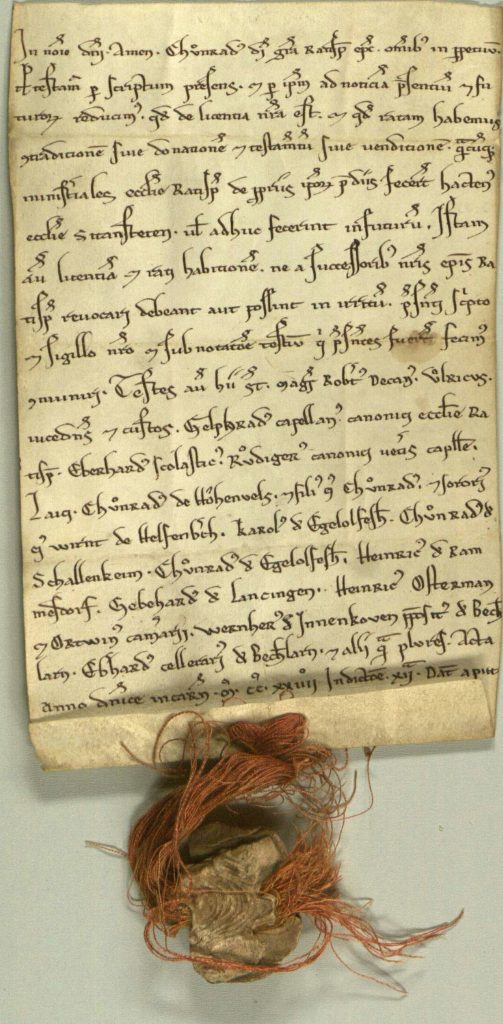 In noie dni. Amen. Chůnrad9 di gra Ratisp epc. omib9 in ppetuū.
testam p scriptum presens. et p ipm ad noticiā psentiū et fu
turorum reducim9. qd de licentia nra est. et qd ratam habemus
9tradicionē siue donacionē et testamtū siue uendicionē. quācūq;
ministiales ecclie Ratisp de propriis ipor pdiis fecert hacten9
ecclie S. ul adhuc fecerint in futurū. Istam
au licentiā et rati habicionē. ne a successorib9 nris epis Ra
tisp reuocari debeant aut possint in irritū. psenti scipto
et sigillo nro et subnotatōe testiū q psentes fuerūt fecim9
9muniri. Testes au hii st. magr Robt9 Decan9. Vlricus.
uicedns et custos. Gelphrad9 capellan9. canonici ecclie Ra
tisp. Eberhard9 scolastic9. Růdiger9 canonici uetis capllę.
Laici. Chůnrad9 de Hohenuels. et fili9 ei9 Chůnrad9. et sororis
ei9 wirnt de Helfenbch. Karol9 d Egelolfesh. Chůnrad9 d
Schallenkeim. Chůnrad9 d Egelolfesh. Heinric9 d Ram
mesdorf. Gebehard9 d Lancingen. Heinric9 Osterman
et Ortwin9 camarii. wernher9 d Innenkouen pposit9 d Bech
larn. Ebhard9 cellerari9 d Bechlarn. et alii q plures. Acta
Anno dnice incarn. m. cc. xxuiii Indictōe. xii. Dat aput